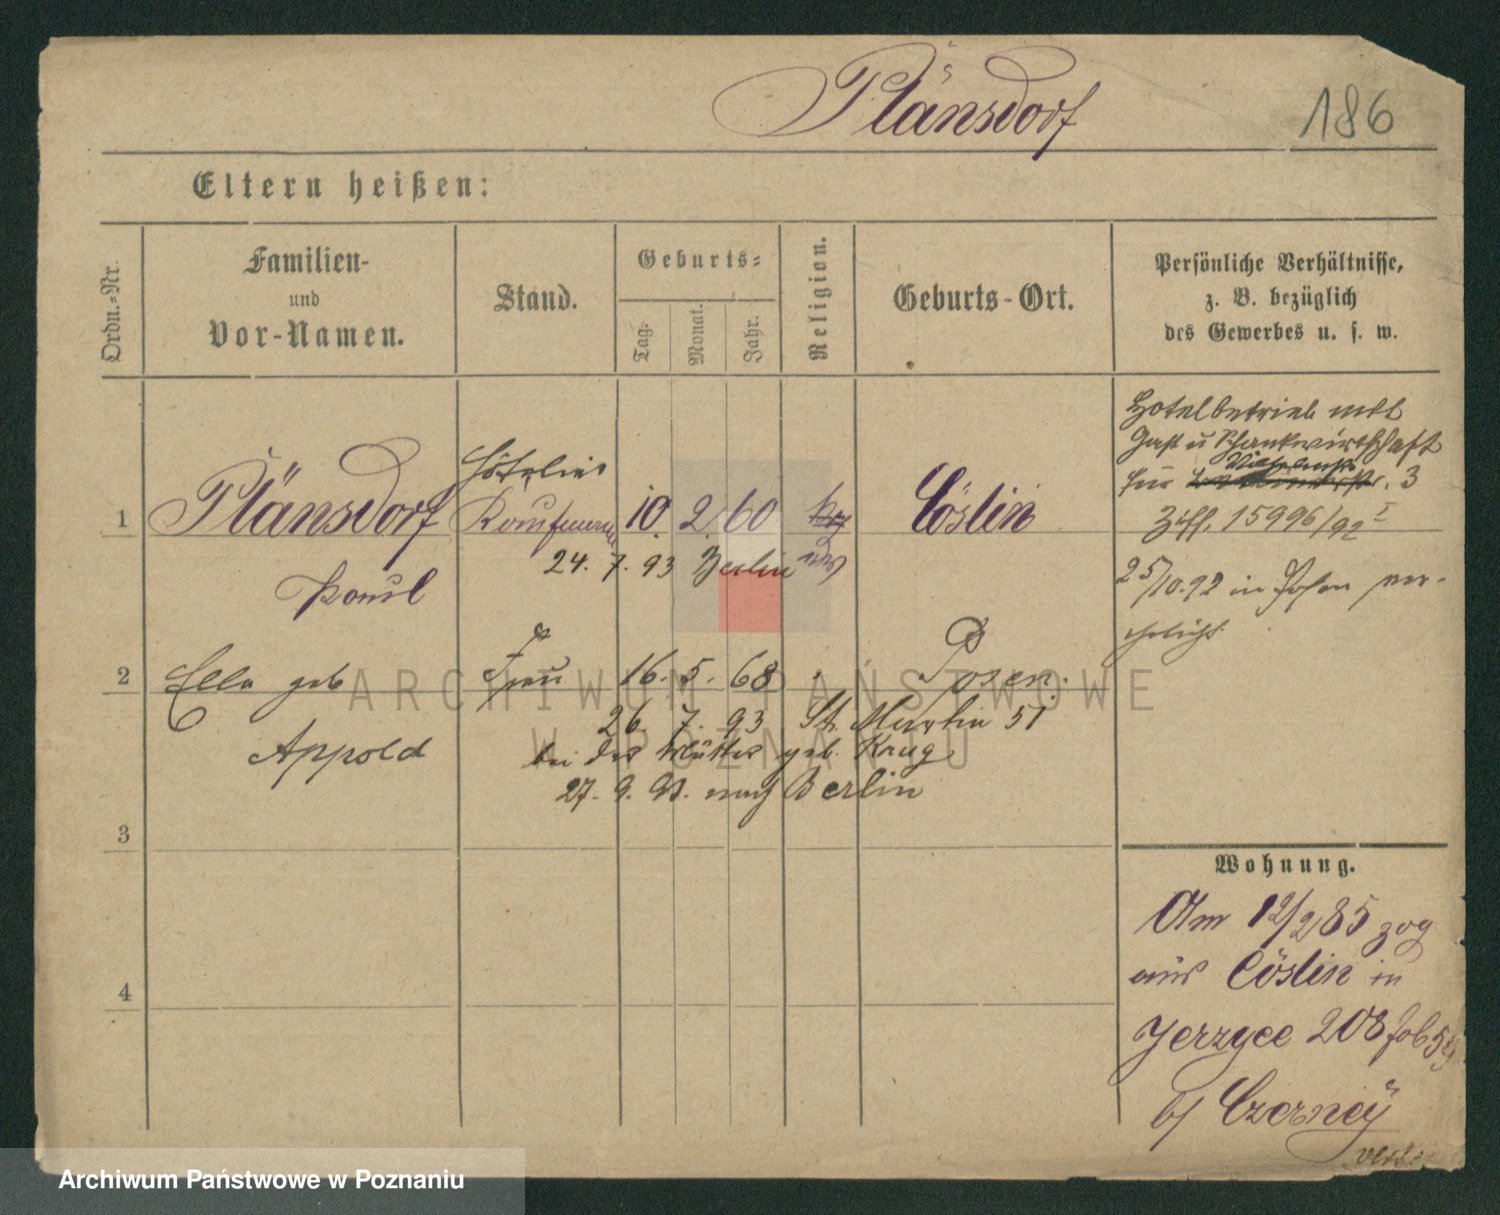 Plänsdorf
186
Eltern heißen:
Ordn.-Nr.
Familien-
und
Vor-Namen.
Stand.
Geburts-
Tag.
Monat.
Jahr.
Religion.
Geburts-Ort.
Persönliche Verhältnisse,
z. B. bezüglich
des Gewerbes u. s. w.
Hotelbetrieb mit
Gast u Schankwirthschaft
für 3
Ziff. 15996/92 I
25/10.92 in Posen ver-
ehelicht
Hôtelier
1 Plänsdorf Kaufmann 10. 2. 60 Cöslin
24. 7. 93 Berlin
Paul
2 Ella geb Frau 16. 5. 68 Posen.
Appold
26. 7. 93 St. Martin 51
bei der Mutter geb. Krug
27. 9. 93. nach Berlin
3
4
Wohnung.
Am 12/2 85 zog
aus Cöslin in
Jerzyce 208
b/ Czerney
ARCHIWUM PAŃSTWOWE
W POZNANIU
Archiwum Państwowe w Poznaniu